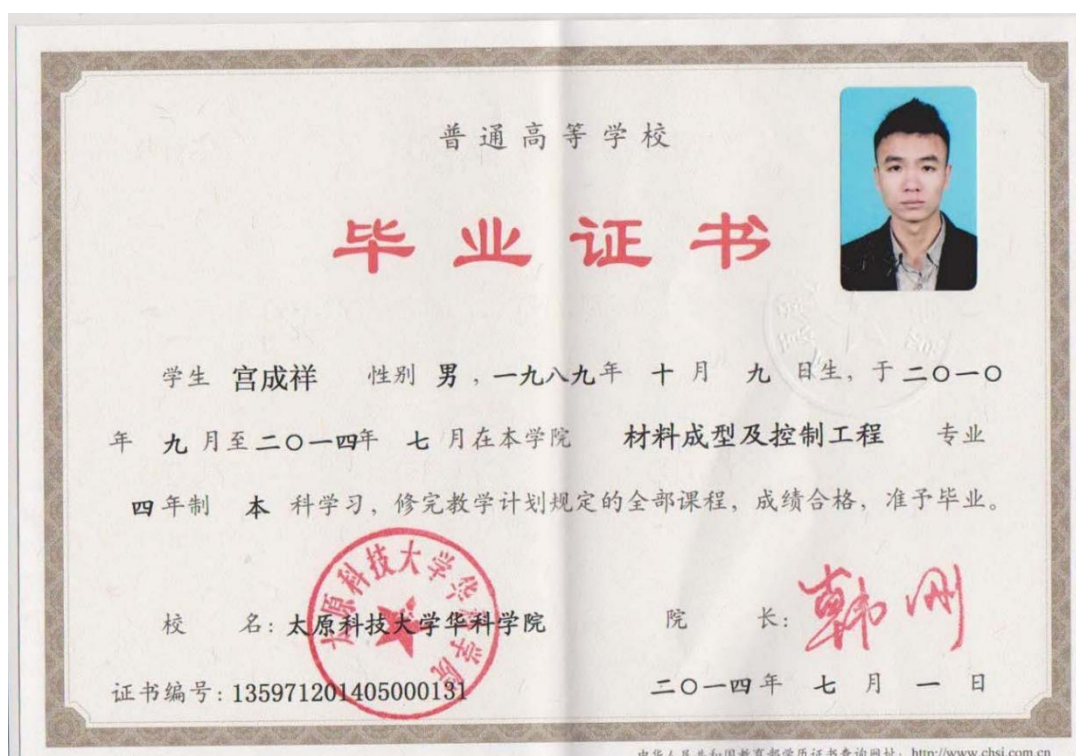 普通高等学校
毕业证书
学生 宫成祥 性别 男，一九八九年 十 月 九 日生，于二〇一〇
年 九 月至二〇一四年 七 月在本学院 材料成型及控制工程 专业
四年制 本 科学习，修完教学计划规定的全部课程，成绩合格，准予毕业。
太原科技大学华科学院
校 名：太原科技大学华科学院 院 长：韩刚
证书编号：135971201405000131 二〇一四年 七 月 一 日
中华人民共和国教育部学历证书查询网址：http://www.chsi.com.cn